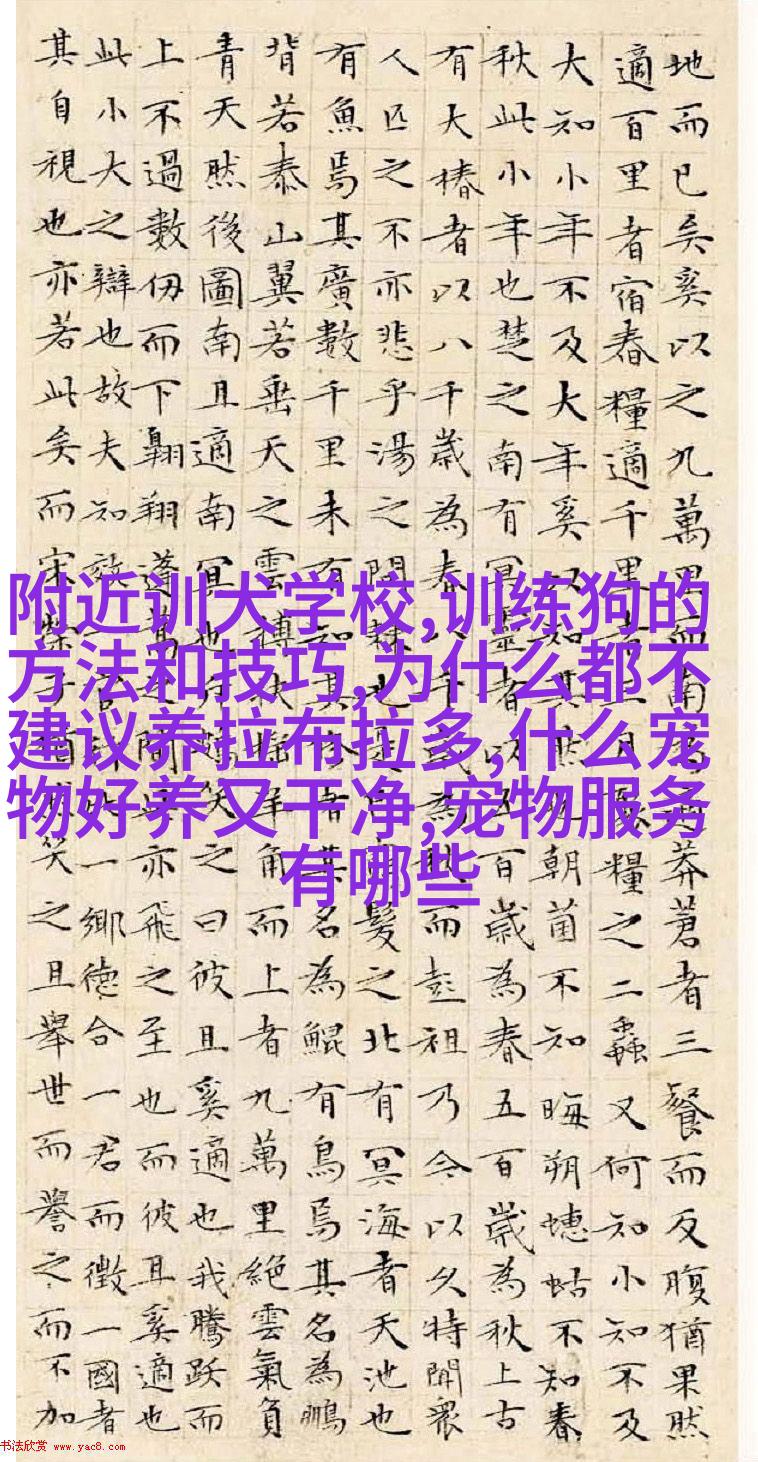 附近训犬学校,训练狗的
方法和技巧,为什么都不
建议养拉布拉多,什么宠
物好养又干净,宠物服务
有哪些
地而已矣奚以之九萬里而南為適莽蒼者三餐而反腹猶果然
適百里者宿舂糧適千里者三月聚糧之二蟲又何知小知不及
大知小年不及大年奚以知其然也朝菌不知晦朔蟪蛄不知春
秋此小年也楚之南有冥靈者以五百歲為春五百歲為秋上古
有大椿者以八千歲為春八千歲為秋而彭祖乃今以久特聞眾
人匹之不亦悲乎湯之問棘也是已窮髮之北有冥海者天池也
有魚焉其廣數千里未有知其脩者其名為鯤有鳥焉其名為鵬
背若泰山翼若垂天之雲摶扶搖羊角而上者九萬里絕雲氣負
青天然後圖南且適南冥也斥鴳笑之曰彼且奚適也我騰躍而
上不過數仞而下翱翔蓬蒿之間此亦飛之至也而彼且奚適也
此小大之辯也故夫知效一官行比一鄉德合一君而徵一國者
其自視也亦若此矣而宋榮子猶然笑之且舉世而譽之而不加
书法欣赏 www.yac8.com